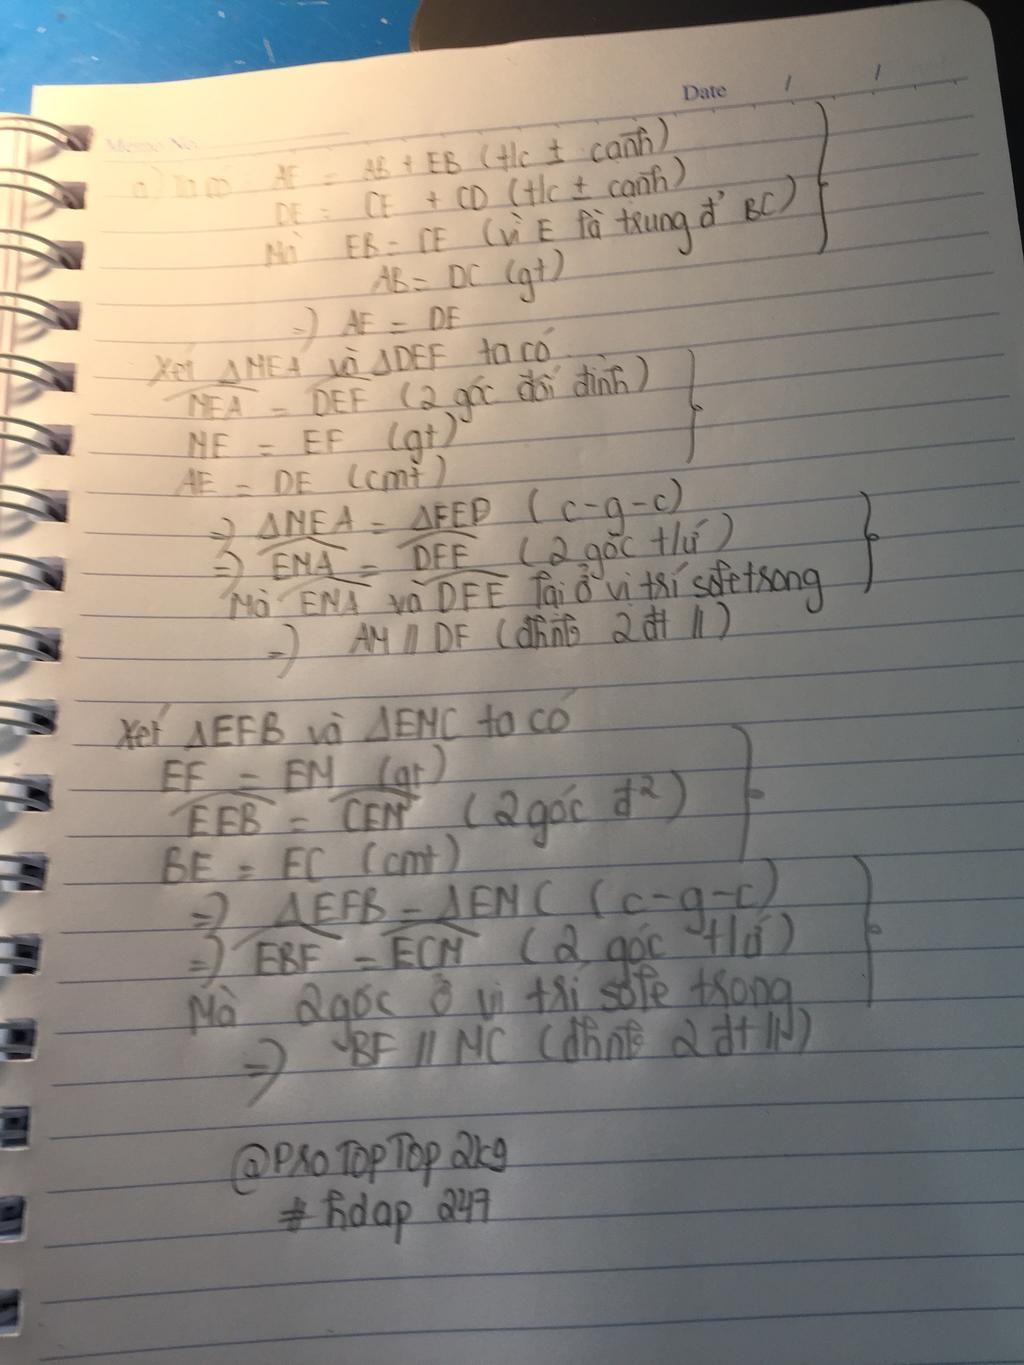 Date / /
Memo No.
a) Ta có AE = AB + EB (t/c ± cạnh)
DE = CE + CD (t/c ± cạnh)
Mà EB = CE (vì E là trung đ' BC)
AB = DC (gt)
=) AE = DE
Xét ΔMEA và ΔDEF ta có
MEA = DEF (2 góc đối đỉnh)
ME = EF (gt)
AE = DE (cmt)
=) ΔMEA = ΔFED (c-g-c)
=) EMA = DFE (2 góc t/ứ)
Mà EMA và DFE lại ở vị trí sole trong
=) AM // DF (dhnb 2 đt //)
Xét ΔEFB và ΔEMC ta có
EF = EM (gt)
FEB = CEM (2 góc đ²)
BE = EC (cmt)
=) ΔEFB = ΔEMC (c-g-c)
=) EBF = ECM (2 góc t/ứ)
Mà 2 góc ở vị trí sole trong
=) BF // MC (dhnb 2 đt //)
@ProTopTop2k9
# hdap 247